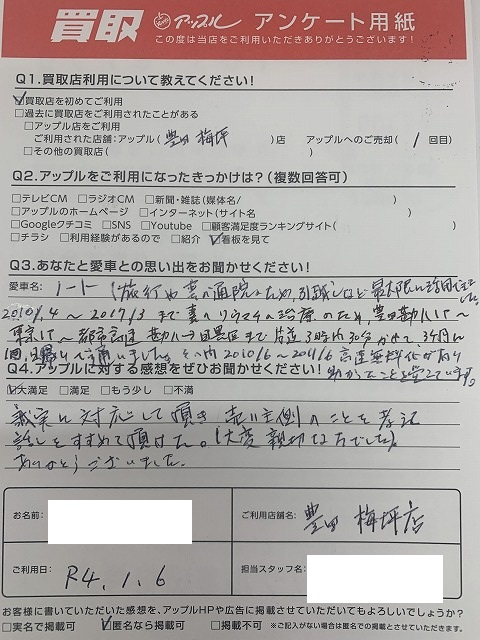 買取 アップル アンケート用紙
この度は当店をご利用いただきありがとうございます!
Q1.買取店利用について教えてください!
☑買取店を初めてご利用
□過去に買取店をご利用されたことがある
□アップル店をご利用
ご利用された店舗:アップル( 豊田 梅坪 )店 アップルへのご売却( 1 回目)
□その他の買取店( )
Q2.アップルをご利用になったきっかけは?(複数回答可)
□テレビCM □ラジオCM □新聞・雑誌(媒体名/ )
□アップルのホームページ □インターネット(サイト名 )
□Googleクチコミ □SNS □Youtube □顧客満足度ランキングサイト( )
□チラシ □利用経験があるので □紹介 ☑看板を見て
Q3.あなたと愛車との思い出をお聞かせください!
愛車名: ノート (旅行や妻の通院のため、引越しなど最大限に活用
2010/6.4~2017/3 まで妻のリウマチの治療のため、豊田勘八IC~
東京IC~都市高速 目黒区まで片道3時間30分かけ、3ヶ月に
1回、日帰りで通いました。その内2010/6~2011/6 高速無料化があり
助かったことを覚えています。
Q4.アップルに対する感想をぜひお聞かせください!
☑大満足 □満足 □もう少し □不満
誠実に対応して頂き 売り主側のことを考え
話しをすすめて頂けた。(大変親切な方でした)
ありがとうございました。
お名前:
ご利用店舗名: 豊田 梅坪店
ご利用日: R4.1.6
担当スタッフ名:
お客様に書いていただいた感想を、アップルHPや広告に掲載させていただいてもよろしいでしょうか?
□実名で掲載可 ☑匿名なら掲載可 □掲載不可 ※ご記入がない場合は匿名での掲載とさせていただきます。